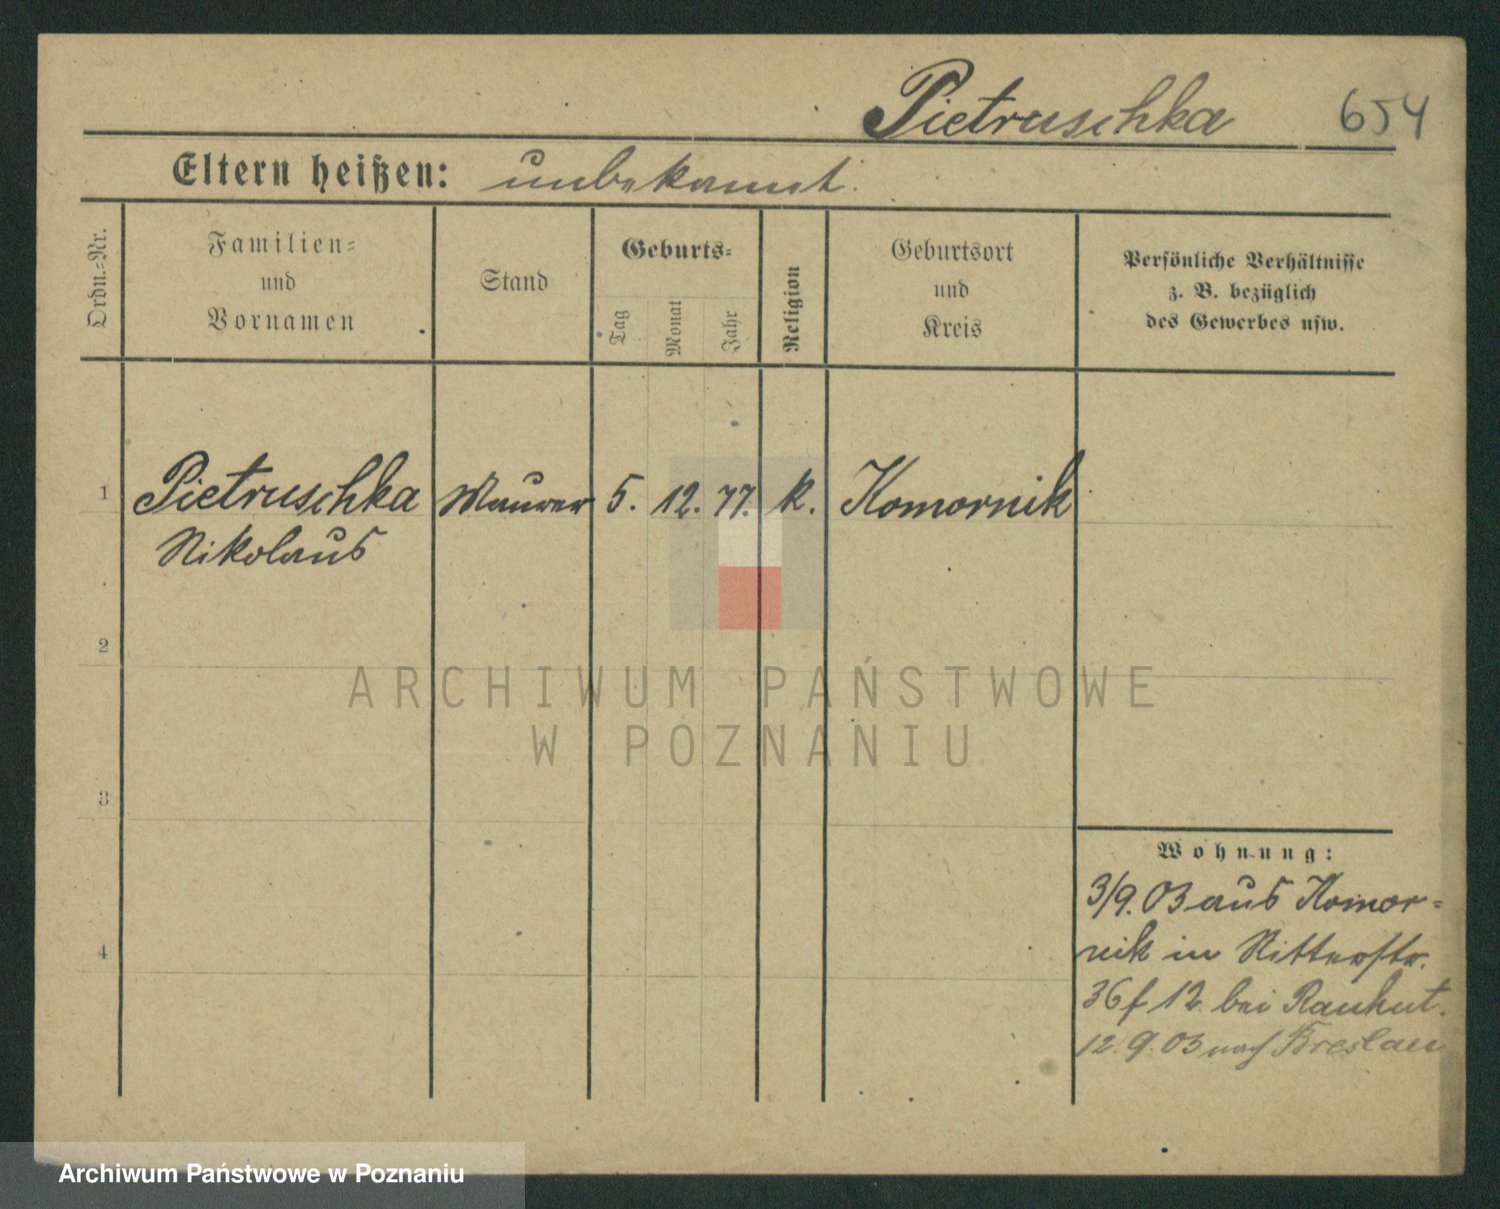 Pietruschka 654
Eltern heißen: unbekannt.
Ordn.=Nr.
Familien=
und
Vornamen
Stand
Geburts=
Tag
Monat
Jahr
Religion
Geburtsort
und
Kreis
Persönliche Verhältnisse
z. B. bezüglich
des Gewerbes usw.
1 Pietruschka Maurer 5. 12. 77. k. Komornik
Nikolaus
2
3
4
Wohnung:
3/9. 03 aus Komor=
nik in Ritterstr.
36 f 12. bei Rauhut.
12. 9. 03 nach Breslau
ARCHIWUM PAŃSTWOWE
W POZNANIU
Archiwum Państwowe w Poznaniu